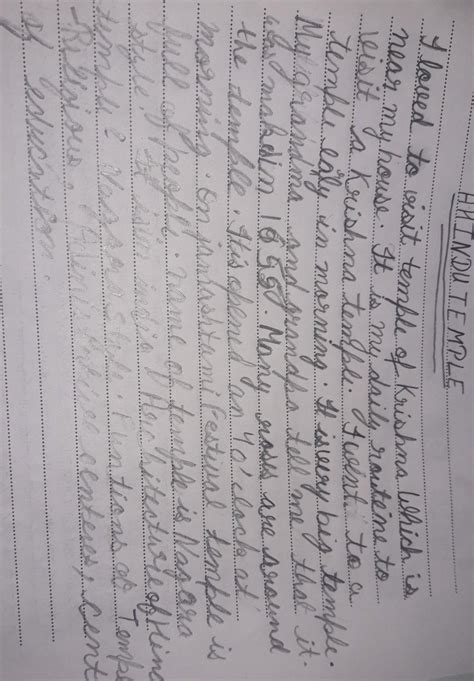 HIINDU TEMPLE
I loved to visit temple of Krishna which is
near my house. It is my daily routine to
visit a Krishna temple. I went to a
temple ealy in morning. It is very big temple.
My grandma and grandpa tell me that it
was maked in 1956. Many roses are around
the temple. It is opened an 4 o'clock at
morning. on janmashtami Festival temple is
full of people. name of temple is Nagara
style. It is in india
temple : Nagara style. Funtions of Temp
-Religious. centeres, cent
of education.